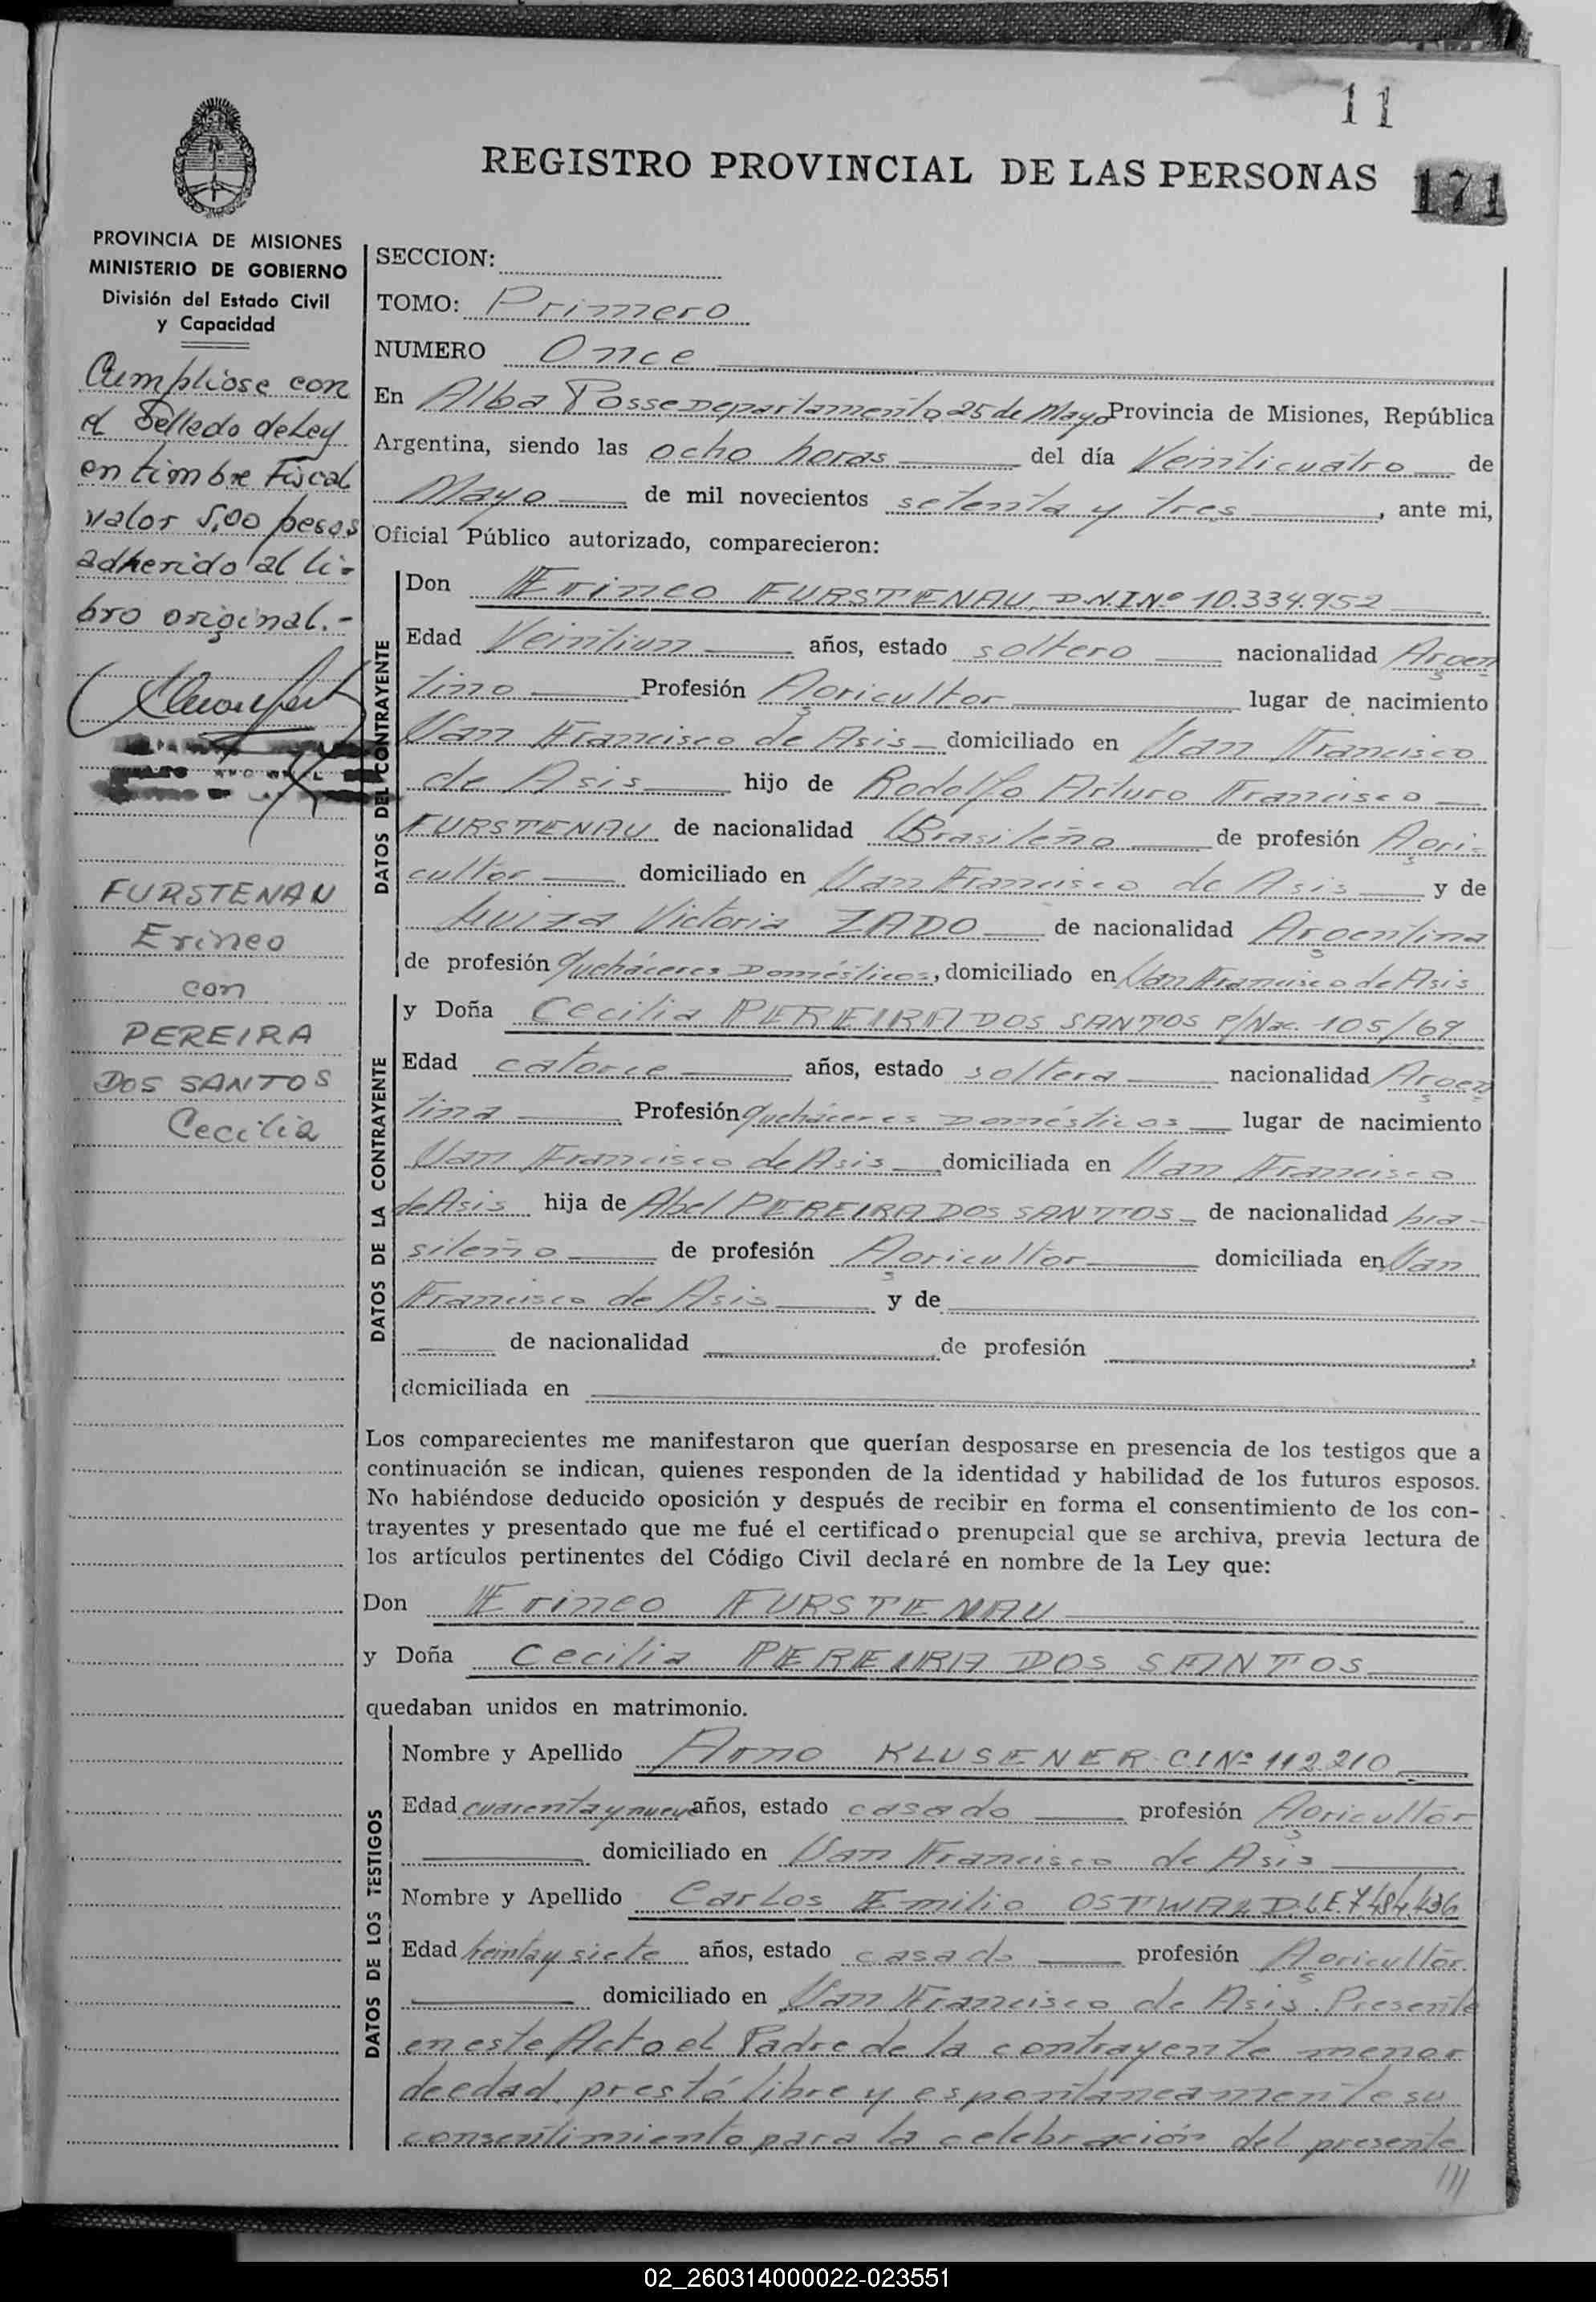 11
REGISTRO PROVINCIAL DE LAS PERSONAS
171
PROVINCIA DE MISIONES
MINISTERIO DE GOBIERNO
División del Estado Civil
y Capacidad
Cumpliose con
el Sellado de Ley
en timbre Fiscal
valor 5,00 pesos
adherido al li-
bro original.-
FURSTENAU
Erineo
con
PEREIRA
DOS SANTOS
Cecilia
SECCION:
TOMO: Primero
NUMERO Once
En Alba Posse Departamento 25 de Mayo Provincia de Misiones, República
Argentina, siendo las ocho horas del día Veinticuatro de
Mayo de mil novecientos setenta y tres, ante mi,
Oficial Público autorizado, comparecieron:
DATOS DEL CONTRAYENTE
Don Erineo FURSTENAU, D.N.I.Nº 10.334.952
Edad Veintiun años, estado soltero nacionalidad Argen
tino Profesión Agricultor lugar de nacimiento
San Francisco de Asis domiciliado en San Francisco
de Asis hijo de Rodolfo Arturo Francisco
FURSTENAU de nacionalidad Brasileño de profesión Agri-
cultor domiciliado en San Francisco de Asis y de
Luiza Victoria ZADO de nacionalidad Argentina
de profesión Queháceres Domésticos, domiciliado en San Francisco de Asis
DATOS DE LA CONTRAYENTE
y Doña Cecilia PEREIRA DOS SANTOS P/Nac. 105/69
Edad catorce años, estado soltera nacionalidad Argen
tina Profesión Queháceres Domésticos lugar de nacimiento
San Francisco de Asis domiciliada en San Francisco
de Asis hija de Abel PEREIRA DOS SANTOS de nacionalidad bra-
sileño de profesión Agricultor domiciliada en San
Francisco de Asis y de
de nacionalidad de profesión ,
domiciliada en
Los comparecientes me manifestaron que querían desposarse en presencia de los testigos que a
continuación se indican, quienes responden de la identidad y habilidad de los futuros esposos.
No habiéndose deducido oposición y después de recibir en forma el consentimiento de los con-
trayentes y presentado que me fué el certificado prenupcial que se archiva, previa lectura de
los artículos pertinentes del Código Civil declaré en nombre de la Ley que:
Don Erineo FURSTENAU
y Doña Cecilia PEREIRA DOS SANTOS
quedaban unidos en matrimonio.
DATOS DE LOS TESTIGOS
Nombre y Apellido Arno KLUSENER C.I Nº 112.210
Edad cuarenta y nueve años, estado casado profesión Agricultor
domiciliado en San Francisco de Asis
Nombre y Apellido Carlos Emilio OSTWALD L.E. 7.484.436
Edad treinta y siete años, estado casado profesión Agricultor
domiciliado en San Francisco de Asis. Presente
en este Acto el Padre de la contrayente menor
de edad, prestó libre y espontaneamente su
consentimiento para la celebración del presente
///
02_260314000022-023551